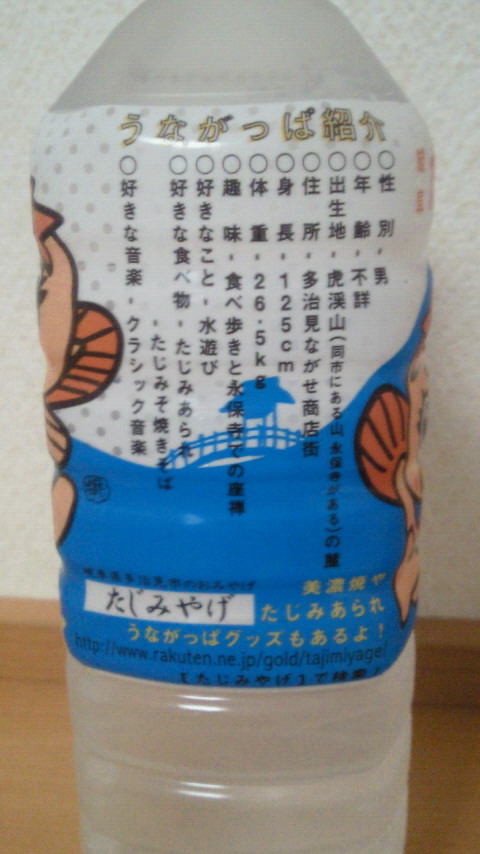 うながっぱ紹介
○性別-男
○年齢-不詳
○出生地-虎渓山(同市にある山、永保寺がある)の麓
○住所-多治見ながせ商店街
○身長-125cm
○体重-26.5kg
○趣味-食べ歩きと永保寺での座禅
○好きなこと-水遊び
○好きな食べ物-たじみあられ
-たじみそ焼きそば
○好きな音楽-クラシック音楽
岐阜県多治見市のおみやげ
たじみやげ
美濃焼や
たじみあられ
うながっぱグッズもあるよ!
http://www.rakuten.ne.jp/gold/tajimiyage/
【たじみやげ】で検索!